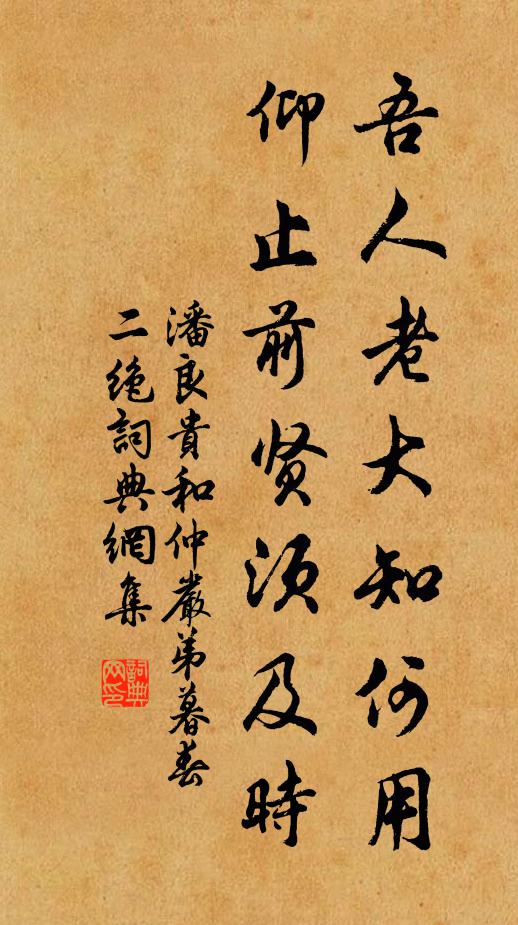 吾人老大知何用
仰止前贤須及時
潘良貴和仲嚴弟暮春
二絶詞典網集
詞典网印